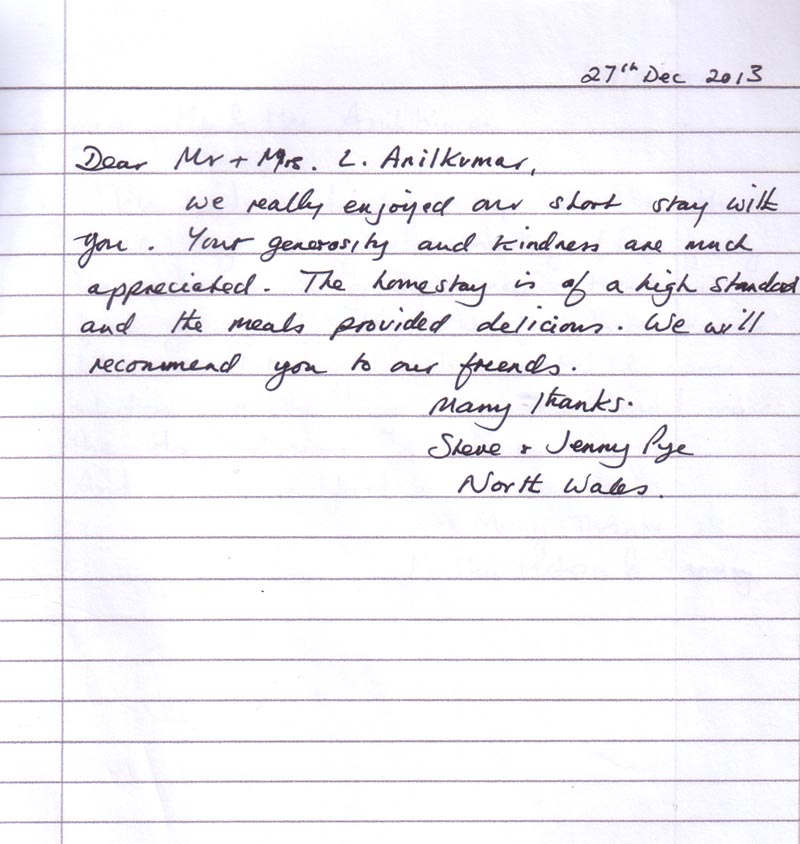 27th Dec 2013
Dear Mr + Mrs. L. Anilkumar,
We really enjoyed our short stay with
you. Your generosity and kindness are much
appreciated. The homestay is of a high standard
and the meals provided delicious. We will
recommend you to our friends.
Many thanks.
Steve & Jenny Pye
North Wales.